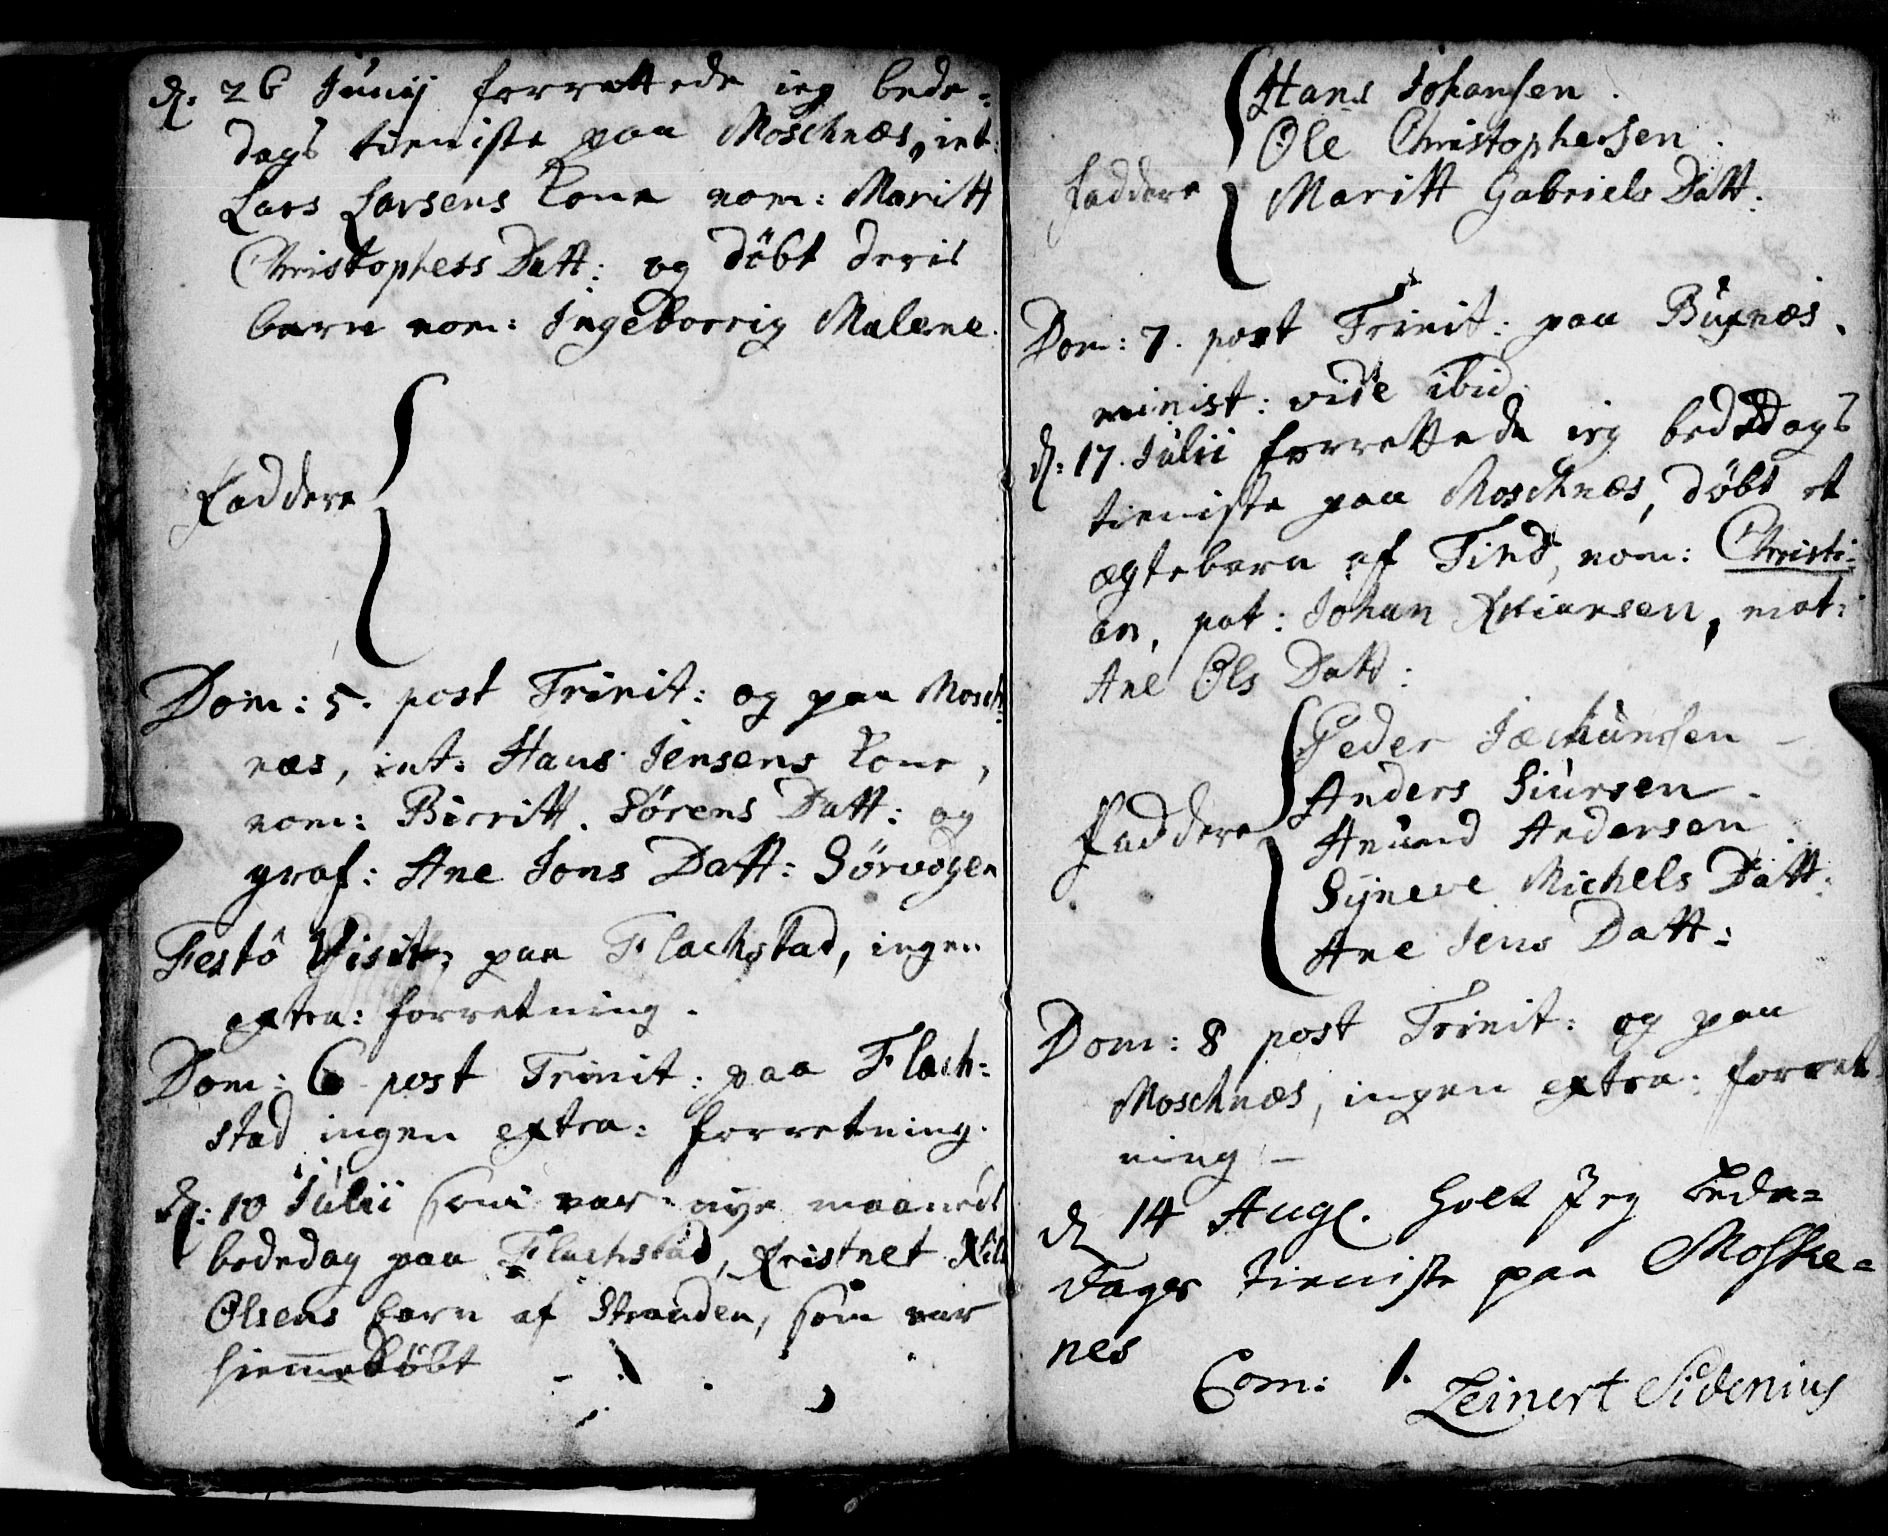 d: 26 Junij forrettede ieg bede-
dags tieniste paa Moschnæs, int:
Lars Larsens kone nom: Maritt
Christophers Datt: og döbt deris
barn nom: Ingeborrig Malene.
Faddere
Dom: 5. post Trinit: og paa Mosch-
næs, int: Hans Jensens kone,
nom: Birritt Sørens Datt: og
graf: Ane Jons Datt: Sörvogen
Festo Visit: paa Flachstad, ingen
extra: forretning.
Dom: 6 post Trinit: paa Flach-
stad ingen extra: forretning.
d: 10 Julii som var nye maaneds
bededag paa Flachstad, kristnet Nils
Olsens barn af Stranden, som var
hiemmedöbt
Hans Johansen.
Ole Christophersen.
Faddere Maritt Gabriels Datt:
Dom: 7. post Trinit: paa Buxnæs.
minist: vide ibid.
d: 17. Julii forrettede ieg bededags
tieniste paa Moschnæs, döbt et
ægtebarn af Tind, nom: Christi-
an, pat: Johan Kriansen, mat:
Ane Ols Datt:
Peder Jachumsen
Anders Siursen
Faddere Anund Andersen
Syneve Michels Datt:
Ane Jens Datt:
Dom: 8 post Trinit: og paa
Moschnæs, ingen extra: forret-
ning
d 14 Aug. holt Jeg Bede-
dages tieniste paa Moske-
nes
Com: 1. Leinert Sidenius